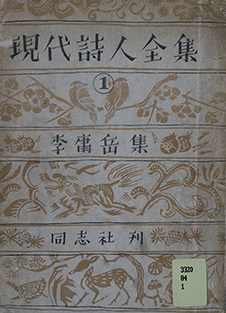 現代詩人全集
①
李庸岳集
同志社刊
3320
84
1